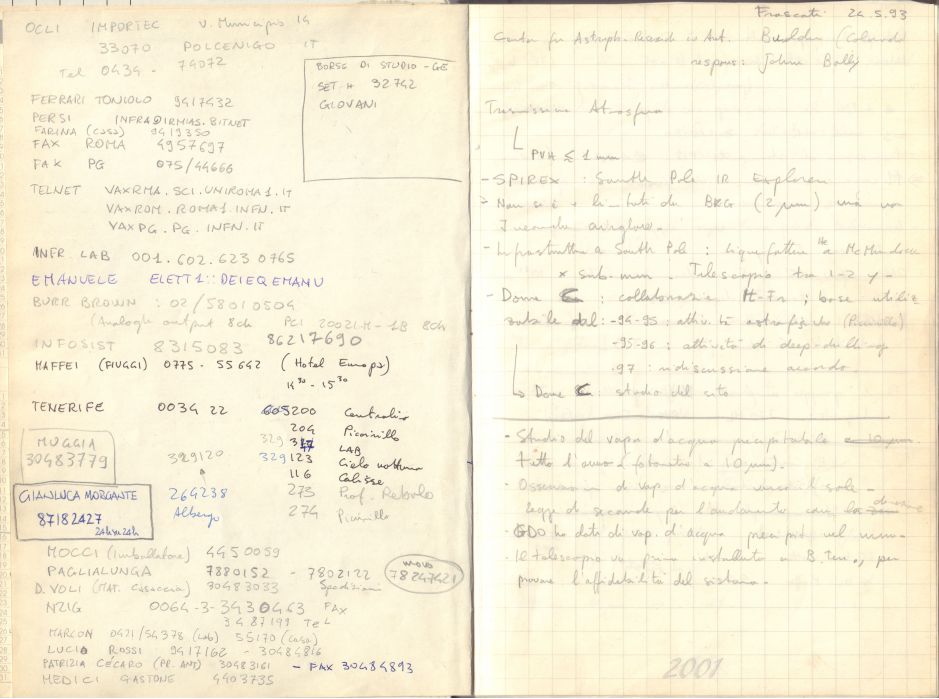 OCLI IMPORTEC V. Municipio 14
33070 POLCENIGO IT
Tel 0434 - 74072
BORSE DI STUDIO - GE
SET. H 32742
GIOVANI
FERRARI TONIOLO 9417432
PERSI INFRA@IRMIAS.BITNET
FARINA (casa) 9419350
FAX ROMA 4957697
FAX PG 075/44666
TELNET VAXRMA.SCI.UNIROMA1.IT
VAXROM.ROMA1.INFN.IT
VAXPG.PG.INFN.IT
INFR. LAB 001.602.623 0765
EMANUELE ELETT1::DEIEQEMANU
BURR BROWN : 02/58010504
(Analogh output 8ch PCI 20021.M-1B 8ch
INFOSIST 8315083 86217690
MAFFEI (FIUGGI) 0775-55642 (Hotel Europa)
14 30 - 15 30
TENERIFE 0034 22 200 Centralino
204 Picirillo
329 LAB
329120 329123 Cielo notturno
116 Calisse
MUGGIA
30483779
264238 273 Prof. Rebolo
Albergo 274 Picirillo
GIANLUCA MORGANTE
87182427
24h su 24h
MOCCI (imballatore) 4450059
PAGLIALUNGA 7880152 - 7802122 Spedizioni
NUOVO
78247421
D. VOLI (MAT. Casaccia) 30483033
NZIG 0064-3-3430463 FAX
3487193 TeL
MARCON 0421/54378 (Lab) 55170 (casa)
LUCIO ROSSI 9417162 - 30484816
PATRIZIA CECARO (PR. ANT) 30483161 - FAX 30484893
MEDICI GASTONE 4403735
Frascati 24.5.93
Center for Astroph. Research in Ant. Boulder (Colorado
respons: John Bally
Trasmissione Atmosfera
PVH ≤ 1 mm
- SPIREX : South Pole IR Explorer
- Non si è + limitati da BKG (2 μm) ma da
airglow.
- Infrastruttura a South Pole : liquefattore He a McMurdo
x sub-mm. Telescopio tra 1-2 y
- Dome C : collaborazione It-Fr ; base utiliz
zabile dal: -94-95 : attività astrofisica (Piccirillo)
-95-96 : attività di deep-drilling
.97 : ridiscussione accordo.
Dome C : studio del sito
- Studio del vapor d'acqua precipitabile
tutto l'anno (fotometro a 10 μm).
- Osservazioni di vap. d'acqua verso il sole -
legge di secante per l'andamento con
- GDO ha dati di vap. d'acqua precipit. nel mm.
- Il telescopio va prima installato a B. Ter., per
provare l'affidabilità del sistema.
2001